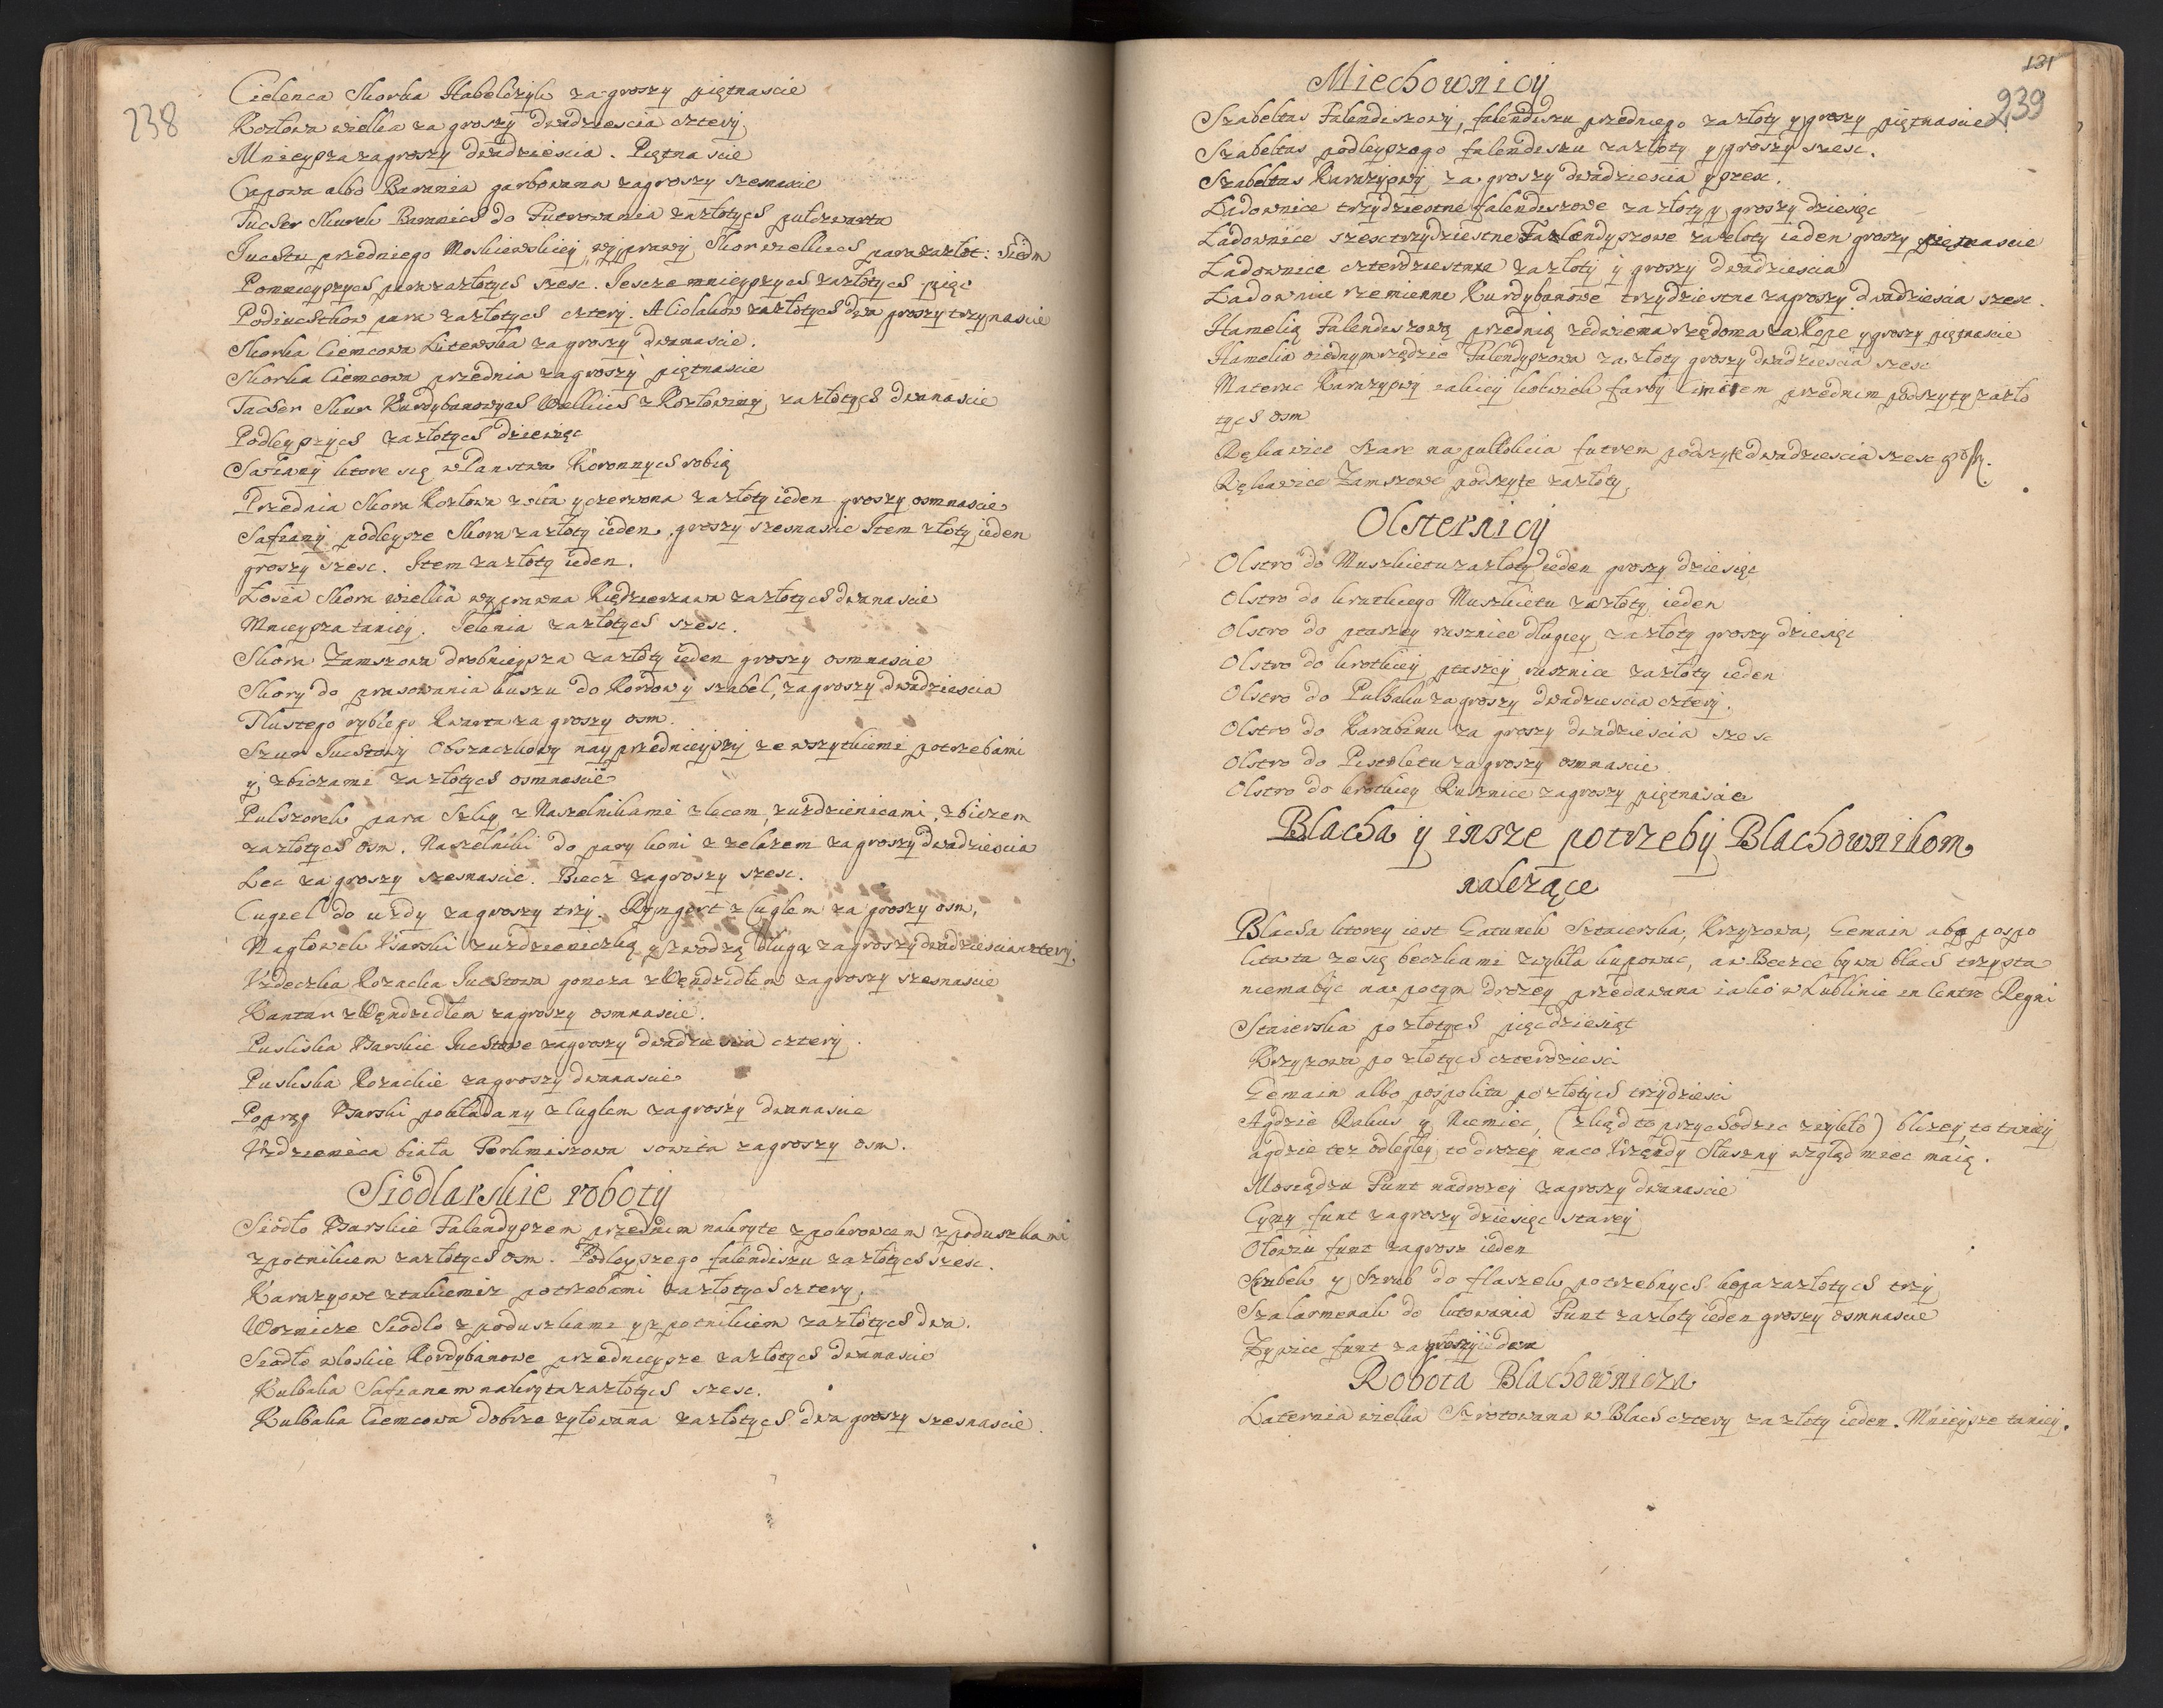 238
Cielenca Skorka Habelczyk za groszy piętnascie
Kozłowa wielka za groszy dwadziescia cztery
Mnieysza za groszy dwadziescia. Piętnascie
Capowa albo Barania garbowana za groszy szesnascie
Tucher Skurek Baranich do Futrowania za złotych pułczwarta
Juchtu przedniego Moskiewskiey wyprawy Skor wielkich para za złot: siedm
Pomnieyszych para za złotych szesc. Jescze mnieyszych za złotych pięc
Podiuchtkow para za złotych cztery. A Ciołakow za złotych dwa groszy trzynascie
Skorka Ciemcowa Litewska za groszy dwanascie.
Skorka Ciemcowa przednia za groszy piętnascie
Tacher Skur Kurdybanowych Wielkich z Kozłowiny za złotych dwanascie
Podleyszych za złotych dziewięc
Safiany ktore się w Panstwa Koronnych robią
Przednia Skora Kozłowa zołta y czerwona za złoty ieden groszy osmnascie
Safiany podleysze Skora za złoty ieden groszy szesnascie Item złoty ieden
groszy szesc. Item za złoty ieden.
Łosia Skora wielka wyprawna Kędzierzawa za złotych dwanascie
Mnieysza taniey. Jelenia za złotych szesc.
Skora Zamszowa drobnieysza za złoty ieden groszy osmnascie
Skory do prasowania kuszu do Kordow y szabel, za groszy dwadziescia
Tłustego rybiego Kwarta za groszy osm.
Szur Juchtowy Obszaczkowy nayprzednieyszy ze wszytkiemi potrzebami
y zbiczami za złotych osmnascie
Pulszorek para Szley z Naszelnikami z lecem, z uzdzienicami, z biczem
za złotych osm. Naszelniki do pary koni z zelazem za groszy dwadziescia
Lec za groszy szesnascie. Biecz za groszy szesc.
Cugiel do uzdy za groszy trzy. Ryngort z Cuglem za groszy osm,
Nagłowek Usarski z uzdzieniczką y z wodzą długą za groszy dwadziescia cztery.
Uzdeczka Kozacka Juchtowa goncza z Wędzidłem za groszy szesnascie
Kantar z Wędzidłem za groszy osmnascie.
Puśliska Usarskie Juchtowe za groszy dwadziescia cztery.
Pusliska Kozackie za groszy dwanascie
Popręg Usarski pokładany z Cuglem za groszy dwanascie
Uzdzienica biała Porkmiszowa sowita za groszy osm.
Siodlarskie roboty
Siodło Usarskie Falendyszem przednim nakryte z pokrowcem z poduszkami
z potnikiem za złotych osm. Podleyszego falendiszu za złotych szesc.
Karazyowe z takiemisz potrzebami za złotych cztery.
Woznicze Siodło z poduszkami y z potnikiem za złotych dwa.
Siodło włoskie Kordybanowe przednieysze za złotych dwanascie
Kulbaka Safianem nakryta za złotych szesc.
Kulbaka Ciemcowa dobrze zyłowana za złotych dwa groszy szesnascie.
131
239
Miechownicy
Szabeltas Falendiszowy, falendiszu przedniego za złoty y groszy piętnascie
Szabeltas podleyszego falendiszu za złoty y groszy szesc.
Szabeltas Karazyowy za groszy dwadziescia y szesc.
Ładownice trzydziestne falendiszowe za złoty y groszy dziesięc
Ładownice szesctrzydziestne Falendyszowe za złoty ieden groszy piętnascie
Ładownice czterdziestne za złoty y groszy dwadziescia
Ładownice rzemienne Kurdybanowe trzydziestne za groszy dwadziescia szesc.
Hamelią Falendiszową przednią zedwiema rzędoma za Kopę y groszy piętnascie
Hamelia oiednym rzędzie Falendyszowa za złoty groszy dwadziescia szesc
Materac Karazyowy iakiey kolwiek farby Cimcem przednim podszyty za zło
tych osm
Rękawice Szare na pułłokcia futrem podszyte dwadziescia szesc gr.
Rękawice Zamszowe podszyte za złoty.
Olsternicy
Olstro do Muszkietu za złoty ieden groszy dziesięc
Olstro do krutkiego Muszkietu za złoty ieden
Olstro do ptaszey rusznice długiey za złoty groszy dziesięc
Olstro do krotkiey ptaszey rusznice za złoty ieden
Olstro do Pułhaku za groszy dwadziescia cztery.
Olstro do Karabinu za groszy dwadziescia szesc
Olstro do Pistoletu za groszy osmnascie
Olstro do krotkiey Rusznice za groszy piętnascie
Blacha y insze potrzeby Blachownikom
nalezące
Blacha ktorey iest Gatunek Sztaierska, Krzyzowa, Gemain abo pospo
lita ta ze się beczkami zwykła kupowac, a w Beczce bywa blach trzysta
niema byc na potym drozey przedawana iako w Lublinie in Centro Regni
Staierska po złotych pięcdziesiąt
Krzyzowa po złotych czterdziesci
Gemain albo pospolita po złotych trzydziesci
A gdzie Rakus y Niemiec, (zkąd to przychodzic zwykło) blizey to taniey
a gdzie tez odległey to drozey na co Urzędy słuszny wzgląd miec maią.
Mosiądzu Funt nadrozey za groszy dwanascie
Cyny funt za groszy dziesięc starey
Ołowiu funt za grosz ieden
Szubek y Szrub do flaszek potrzebnych kopa za złotych trzy
Szalarmoniak do lutowania Funt za złoty ieden groszy osmnascie
Zywice funt za groszy ieden
Robota Blachownicza
Laternia wielka Szrotowana w Blach cztery za złoty ieden. Mnieysze taniey.